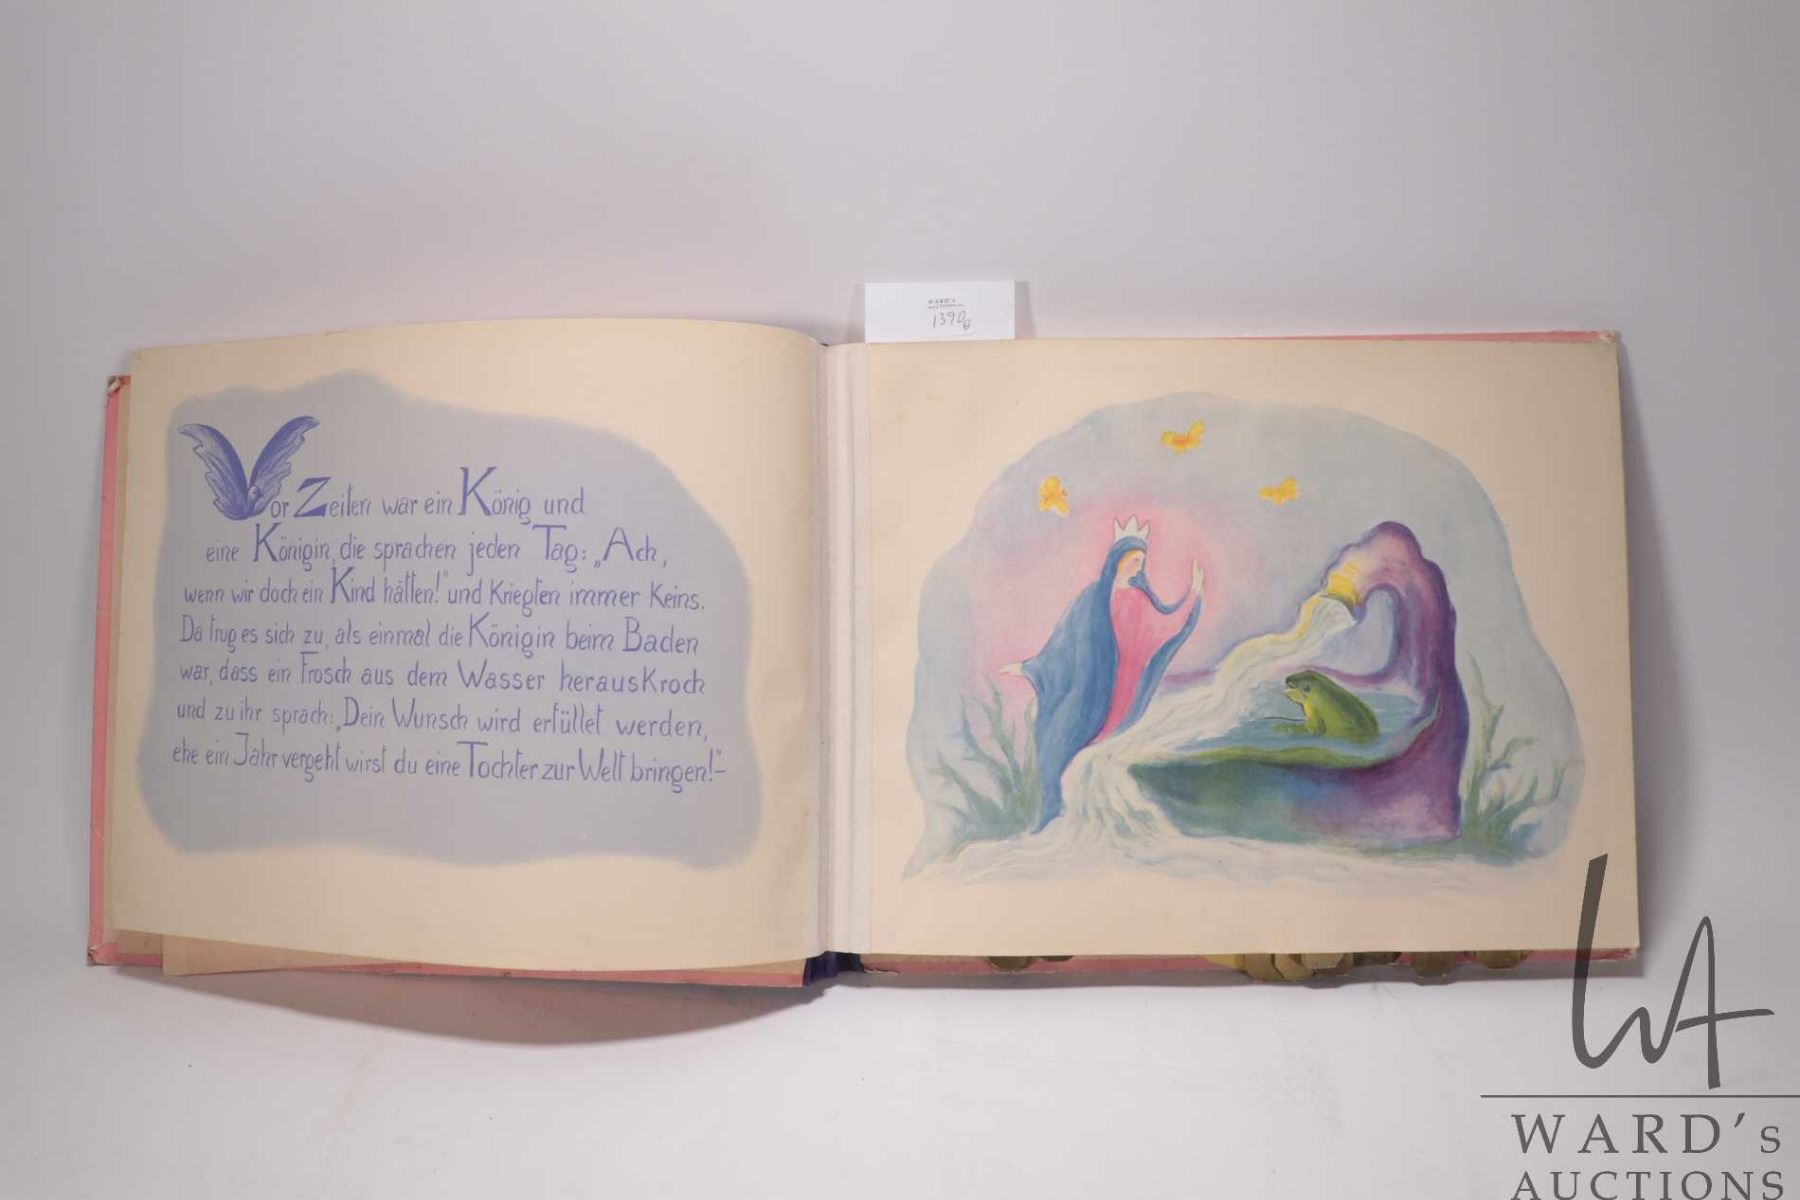 Vor Zeiten war ein König und
eine Königin, die sprachen jeden Tag: „Ach,
wenn wir doch ein Kind hätten!" und Kriegten immer Keins.
Da trug es sich zu, als einmal die Königin beim Baden
war, dass ein Frosch aus dem Wasser herausKroch
und zu ihr sprach: „Dein Wunsch wird erfüllet werden,
ehe ein Jahr vergeht wirst du eine Tochter zur Welt bringen!"-
WARD's
AUCTIONS
1390
WA
WARD's
AUCTIONS